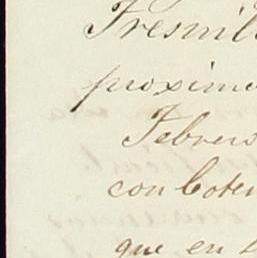 Fresnill
proximo
Febrero
con Coter
que en s